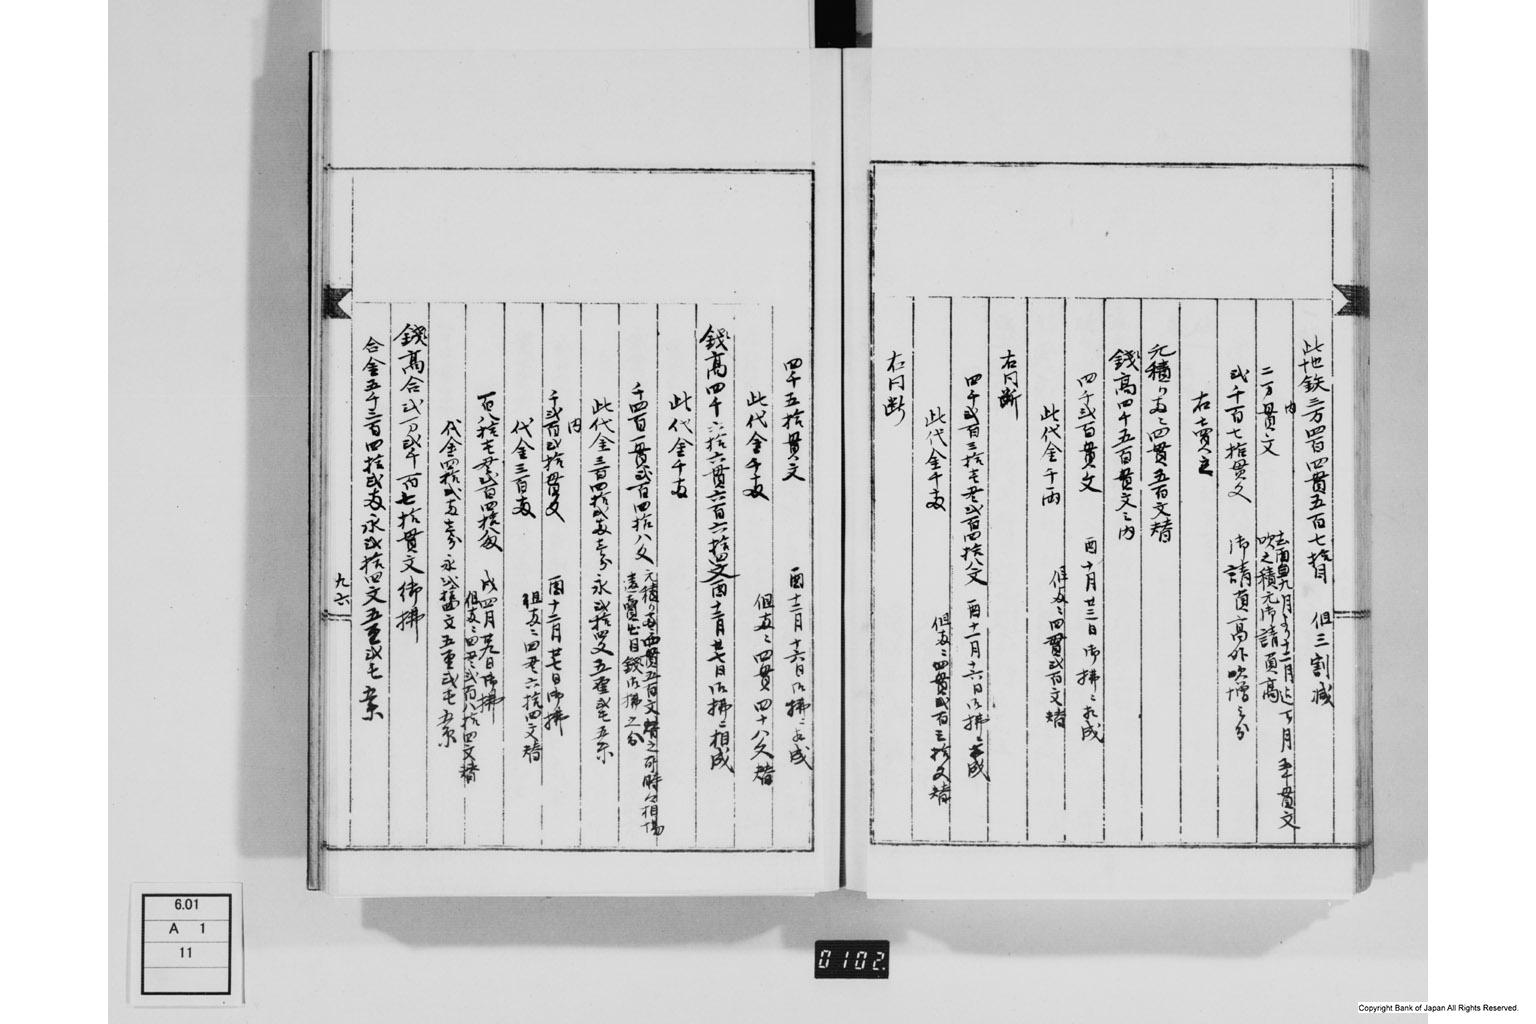 此地鉄三万四百四貫五百七拾目 但三割減
内
二万貫文 去酉九月より十二月迄一ヶ月五千貫文
吹之積元御請負高
弐千百七拾貫文 御請負高外吹増之分
右売立
元積り両ニ四貫五百文替
銭高四千五百貫文之内
四千弐百貫文 酉十月廿三日御払ニ相成
此代金千両 但両ニ四貫弐百文替
右同断
四千弐百三拾七貫弐百四拾八文 酉十一月十六日御払ニ相成
此代金千両 但両ニ四貫弐百三拾文替
右同断
四千五拾貫文 酉十二月十六日御払ニ相成
此代金千両 但両ニ四貫四十八文替
銭高四千六拾六貫六百六拾四文 酉十二月廿七日御払ニ相成
此代金千両
千四百一貫弐百四拾八文 元積り両ニ四貫五百文替之所時々相場
売出目銭御払之分
此代金三百四拾弐両壱分永弐拾四文五厘弐毛五糸
内
千弐百弐拾貫文 酉十二月廿七日御払
代金三百両 但両ニ四貫六拾四文替
百八拾壱貫弐百四拾八文 戌四月廿九日御払
但両ニ四貫弐百八拾四文替
代金四拾弐両壱分永弐拾四文五厘弐毛五糸
銭高合弐万弐千百七拾貫文御払
合金五千三百四拾弐両永弐拾四文五厘弐毛五糸
九六
6.01
A 1
11
0102
Copyright Bank of Japan All Rights Reserved.